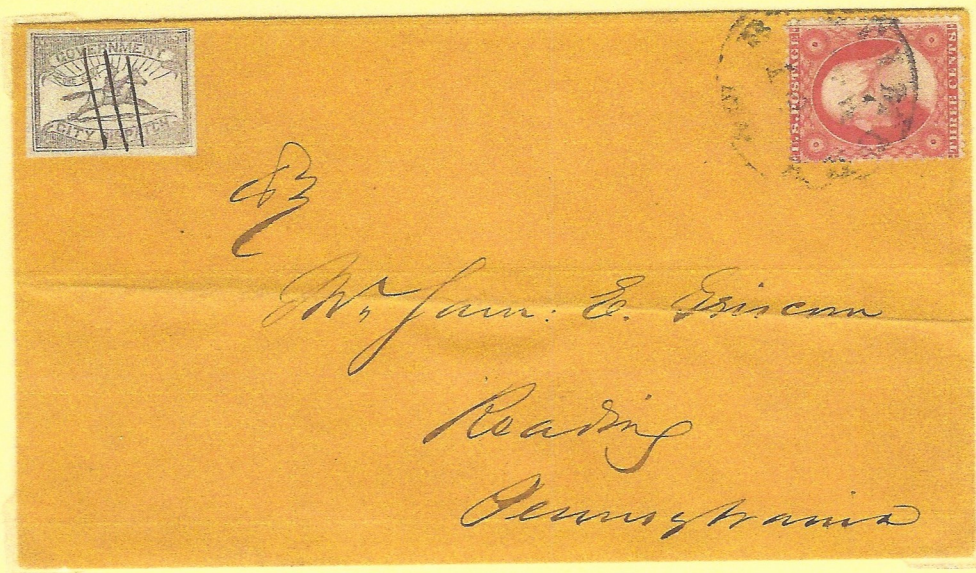 GOVERNMENT
CITY DISPATCH
U.S. POSTAGE
THREE CENTS
Mr Sam: E. Griscom
Reading
Pennsylvania